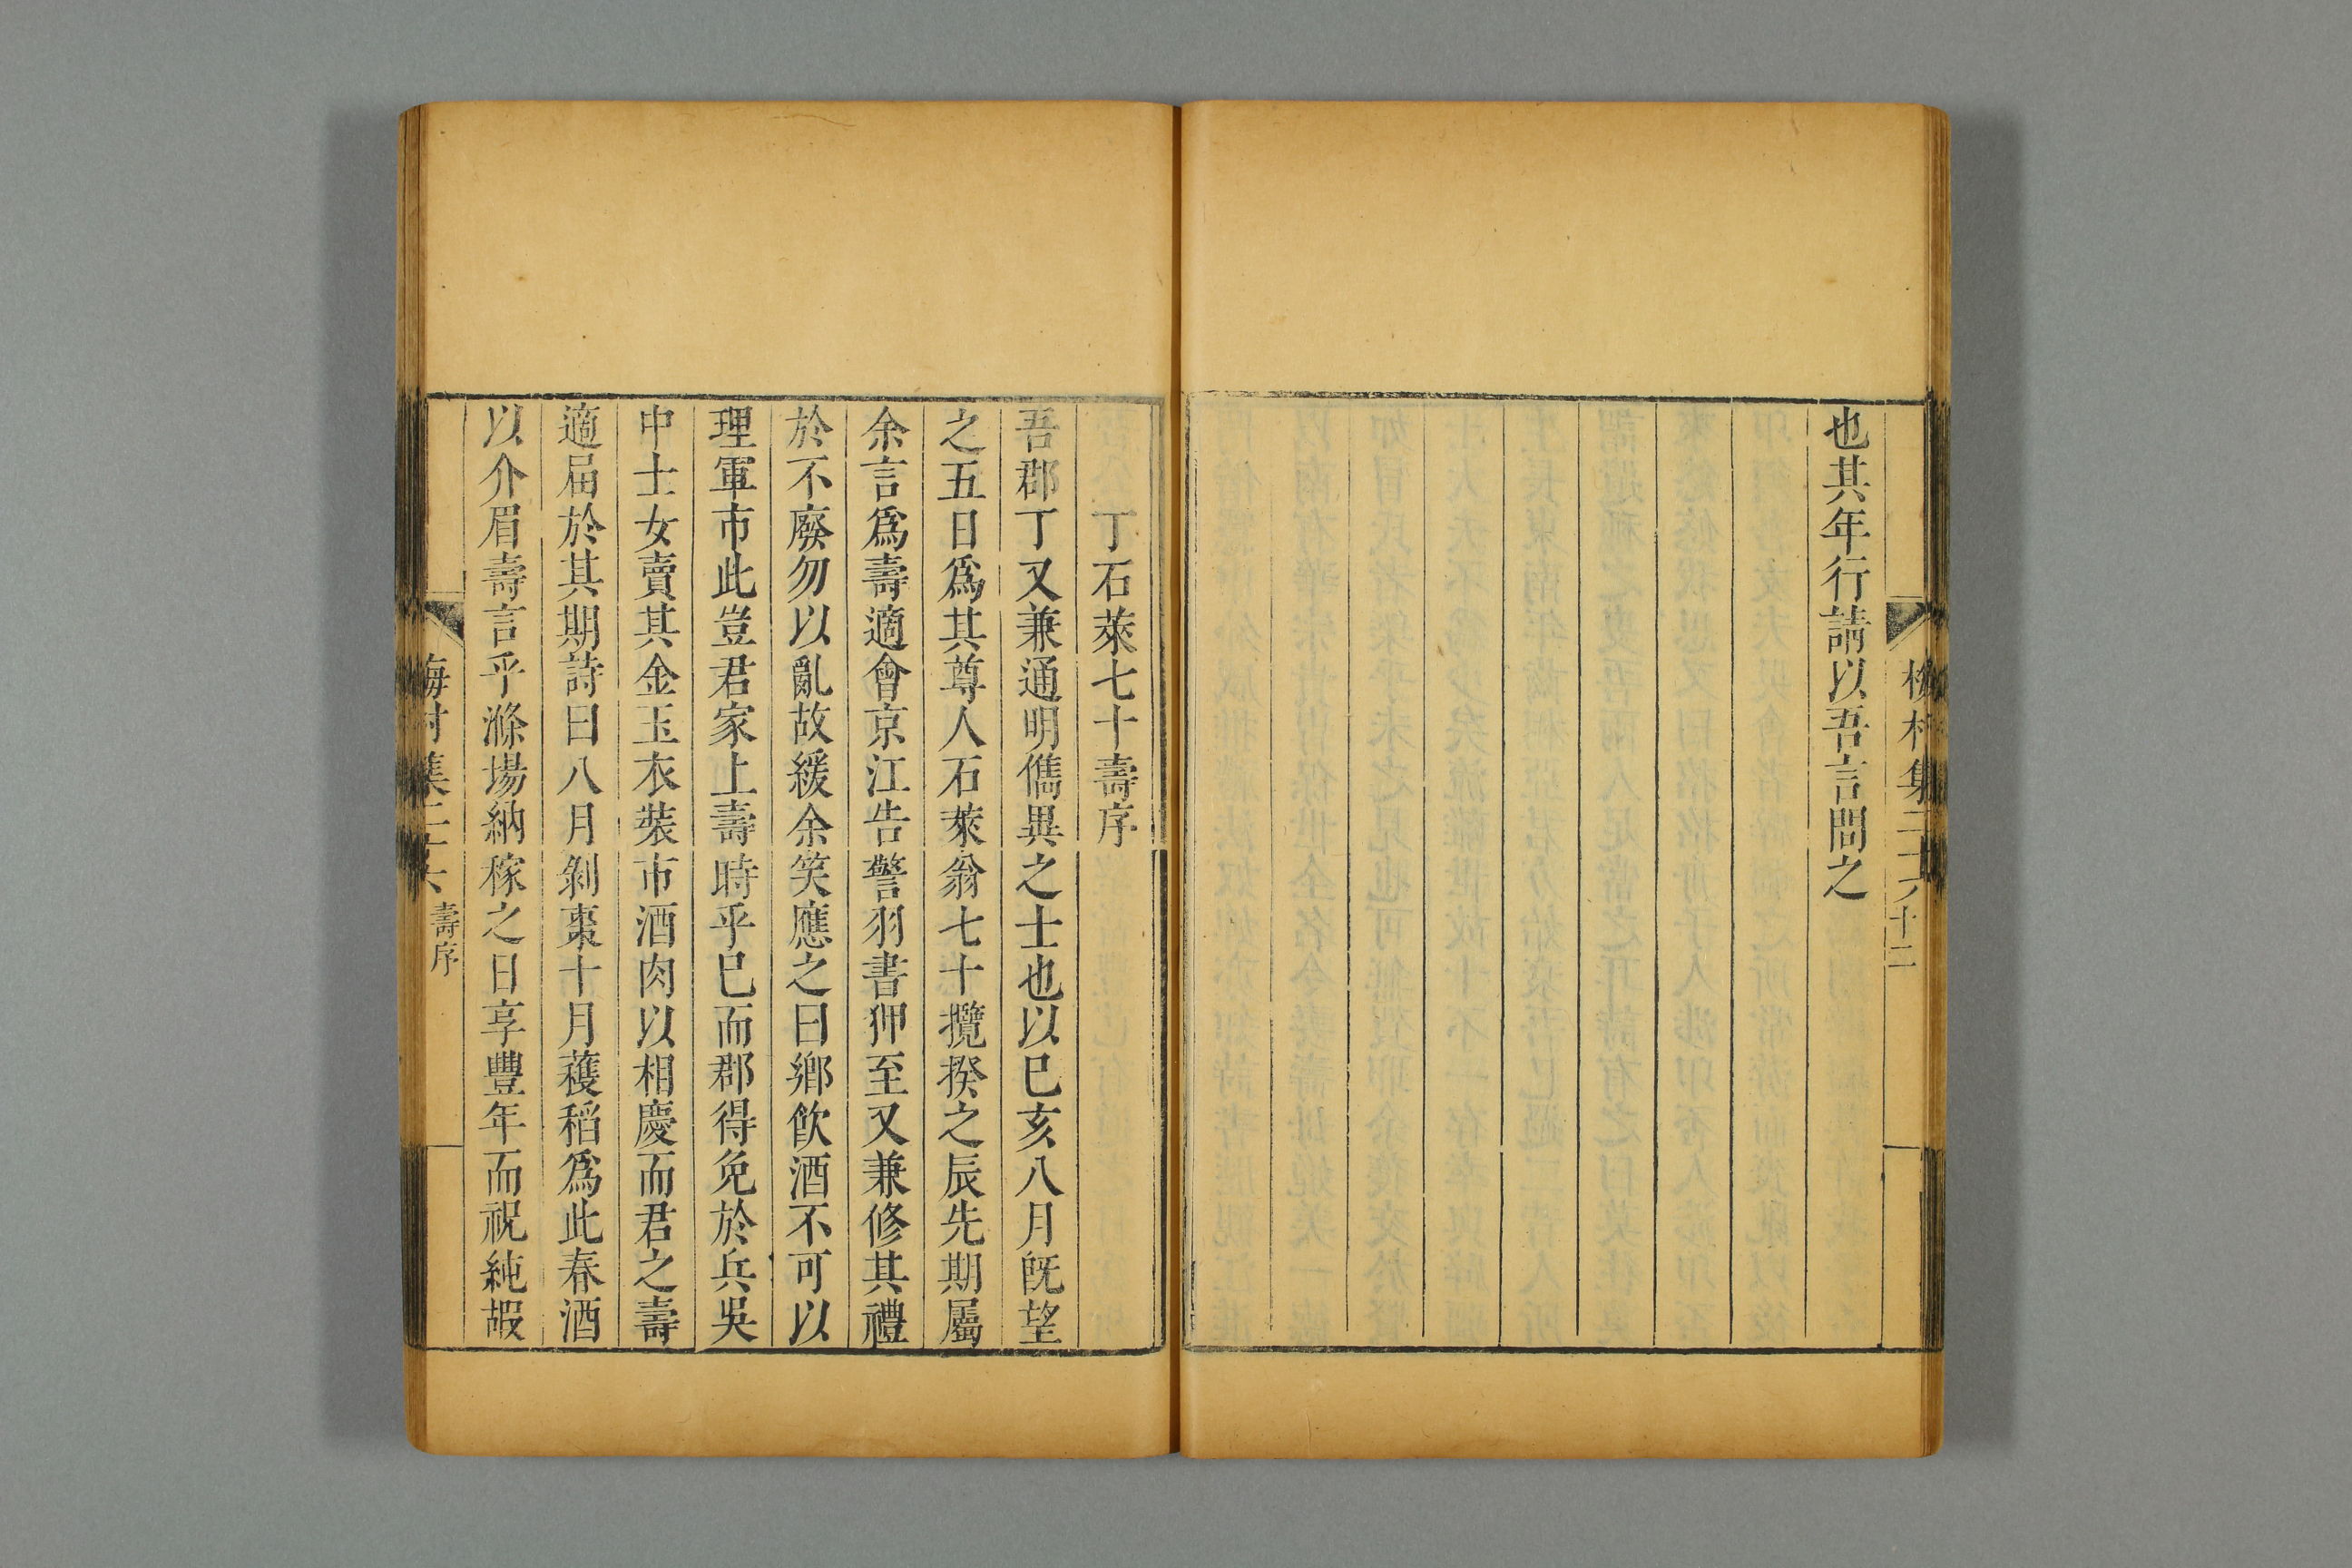 也其年行請以吾言問之
村集二十六 十二
丁石萊七十壽序
吾郡丁又兼通明儁異之士也以巳亥八月旣望
之五日爲其尊人石萊翁七十攬揆之辰先期屬
余言爲壽適會京江告警羽書狎至又兼修其禮
於不廢勿以亂故緩余笑應之曰鄉飮酒不可以
理軍市此豈君家上壽時乎巳而郡得免於兵吳
中士女賣其金玉衣裝市酒肉以相慶而君之壽
適届於其期詩曰八月剝棗十月蓰稻爲此春酒
以介眉壽言乎滌場納稼之日享豐年而祝純嘏
梅村集二十六 壽序